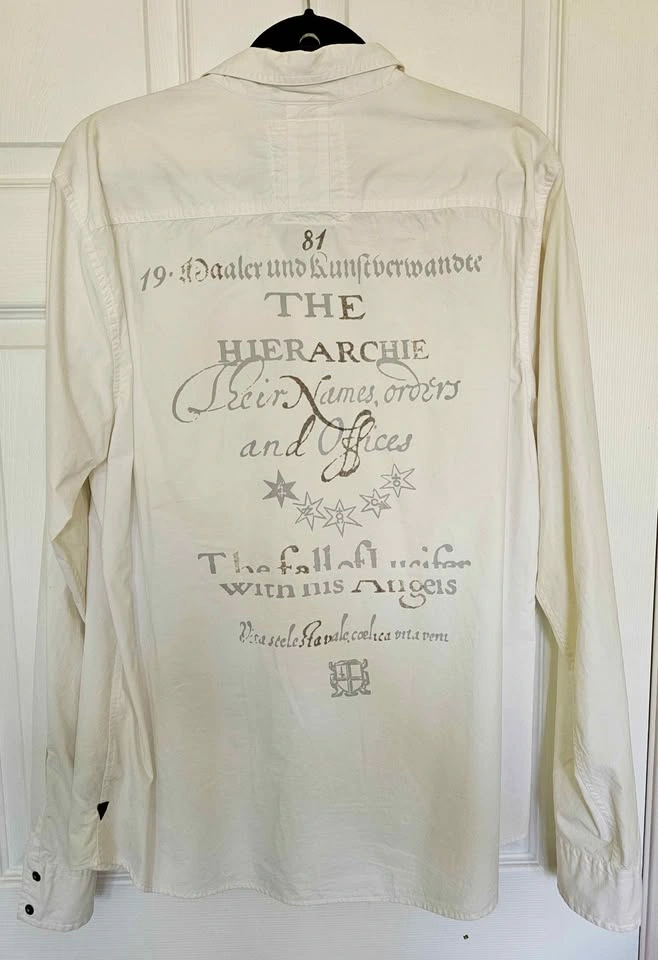 81
19. Maaler und Kunstverwandte
THE
HIERARCHIE
Their Names, orders
and Offices
1 2 8
The fall of Lucifer
with his Angels
Vita scelesta vale, cœlica vita veni